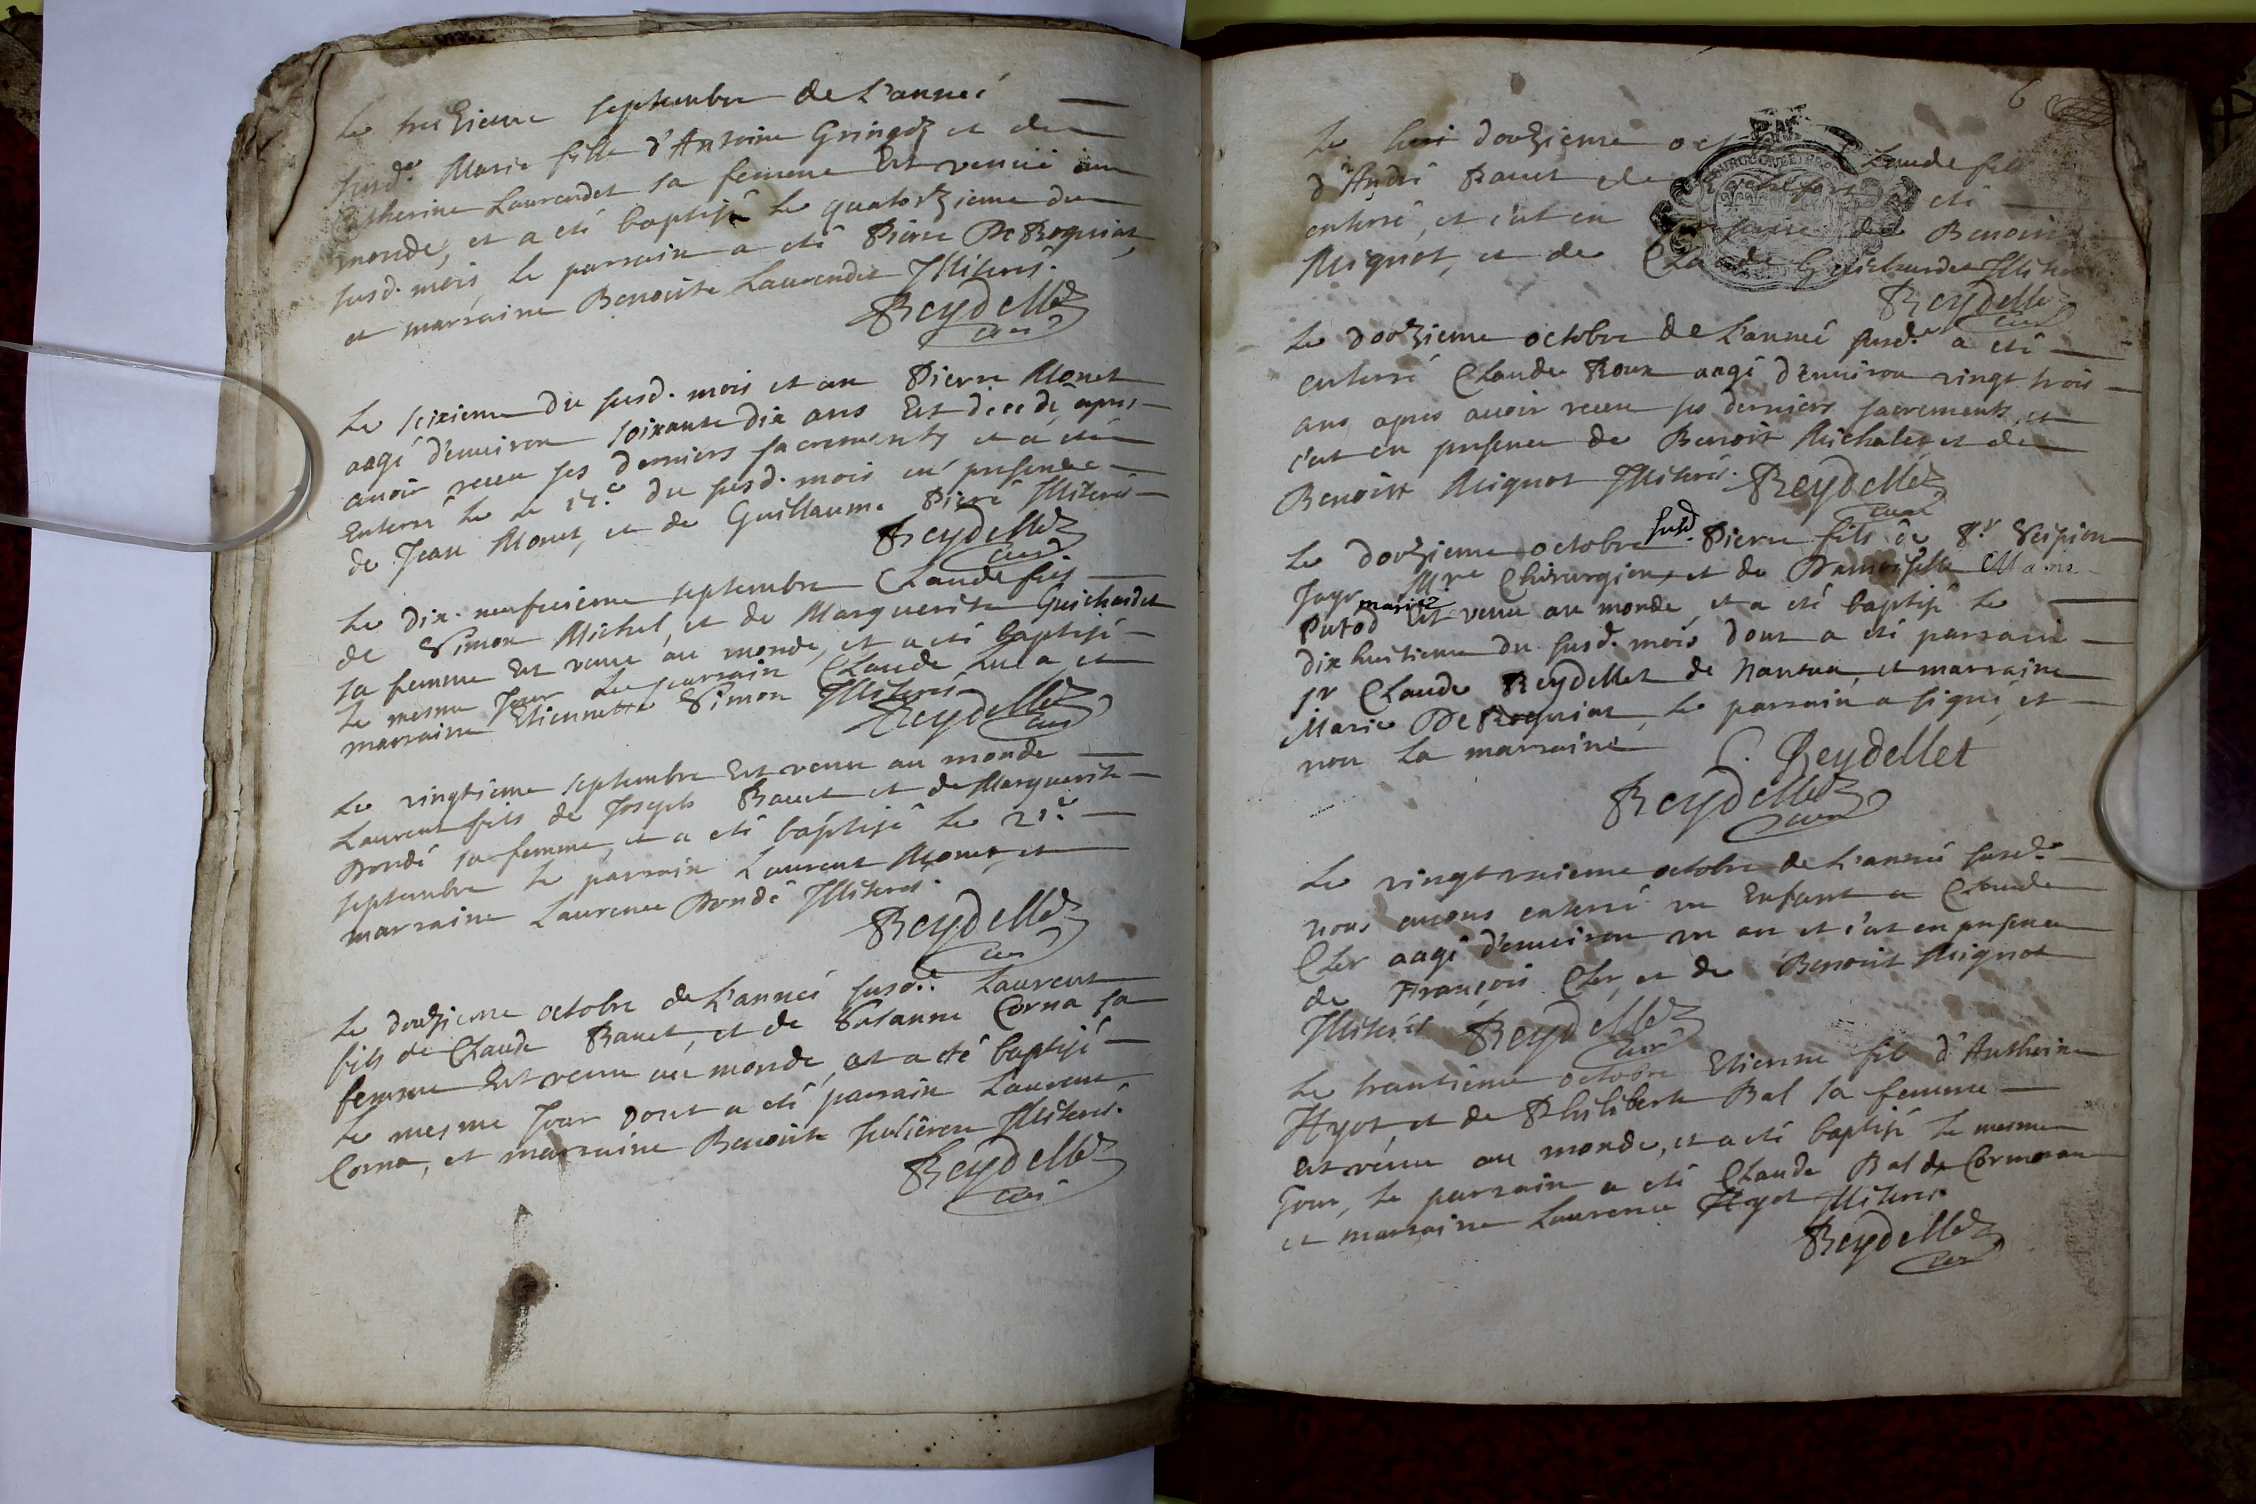 Le treizieme septembre de L'anneé
susd.e Marie fille d'Antoine Gringoz et de
Catherine Laurendet sa femme Est venuë au
monde, et a eté baptisé Le quatorzieme du
susd. mois, Le parrain a eté Pierre De Roquiat,
et marraine Benoiste Laurendet Illiterés.
Reydellet
curé
Le seizieme du susd. mois et an Pierre Monet
aagé d'enuiron soixante dix ans Est decedé apres
auoir receu ses derniers sacrements et a eté
Enterré Le 17.e du susd. mois en presence
de Jean Monet, et de Guillaume Piere Illiterés
Reydellet
curé.
Le dix-neufuieme septembre Claude fils
de Simon Michel, et de Marguerite Guichardet
sa femme Est venu au monde, et a eté baptisé
Le mesme Jour Le parrain Claude et
marraine Etiennette Simon Illiterés
Reydellet
curé
Le vingtieme septembre Est venu au monde
Laurent fils de Joseph Bauet et de Marguerite
Dondé sa femme, et a eté baptisé Le 21.e
septembre Le parrain Laurent Monet, et
marraine Laurence Dondé Illiterés.
Reydellet
curé
Le douzieme octobre de L'anneé susd.e Laurent
fils de Claude Bauet, et de Susanne Corna sa
femme Est venu au monde, et a eté baptisé
Le mesme Jour dont a eté parrain Laurent
Corna, et marraine Benoiste Illiterés.
Reydellet
curé
6
Le douzieme Claude
d'André Bauet de a eté
enterré, et c'est en de Benoist
Mignot, et de Claude Guichardet
Reydellet
curé
Le douzieme octobre de L'anneé susd.e a eté
enterré Claude Roux aagé d'Enuiron vingt trois
ans apres auoir receu ses derniers sacrements, et
c'est en presence de Benoist Michalet et de
Benoist Mignot Illiterés. Reydellet
curé
Le douzieme octobre susd. Pierre fils de Sr Scipion
Jayr Mre Chirurgien, et de Damoiselle Marie
Putod mariez Est venu au monde, et a eté baptisé Le
dix huitieme du susd. mois dont a eté parrain
sr Claude Reydellet de Nantua, et marraine
Marie De Roquiat, Le parrain a signé, et
non La marraine
C. Reydellet
Reydellet
curé
Le vingt vnieme octobre de L'anneé susd.e
nous auons enterré vn Enfant a Claude
Cler aagé d'enuiron vn an et c'est en presence
de François Cler, et de Benoist Mignot
Illiterés Reydellet
curé
Le trantieme octobre Etienne fils d'Antheine
Hyot, et de Philiberte Bal sa femme
Est venu au monde, et a eté baptisé Le mesme
Jour, Le parrain a eté Claude Bal de Cormoran
et marraine Laurence Hyot Illiterés.
Reydellet
curé